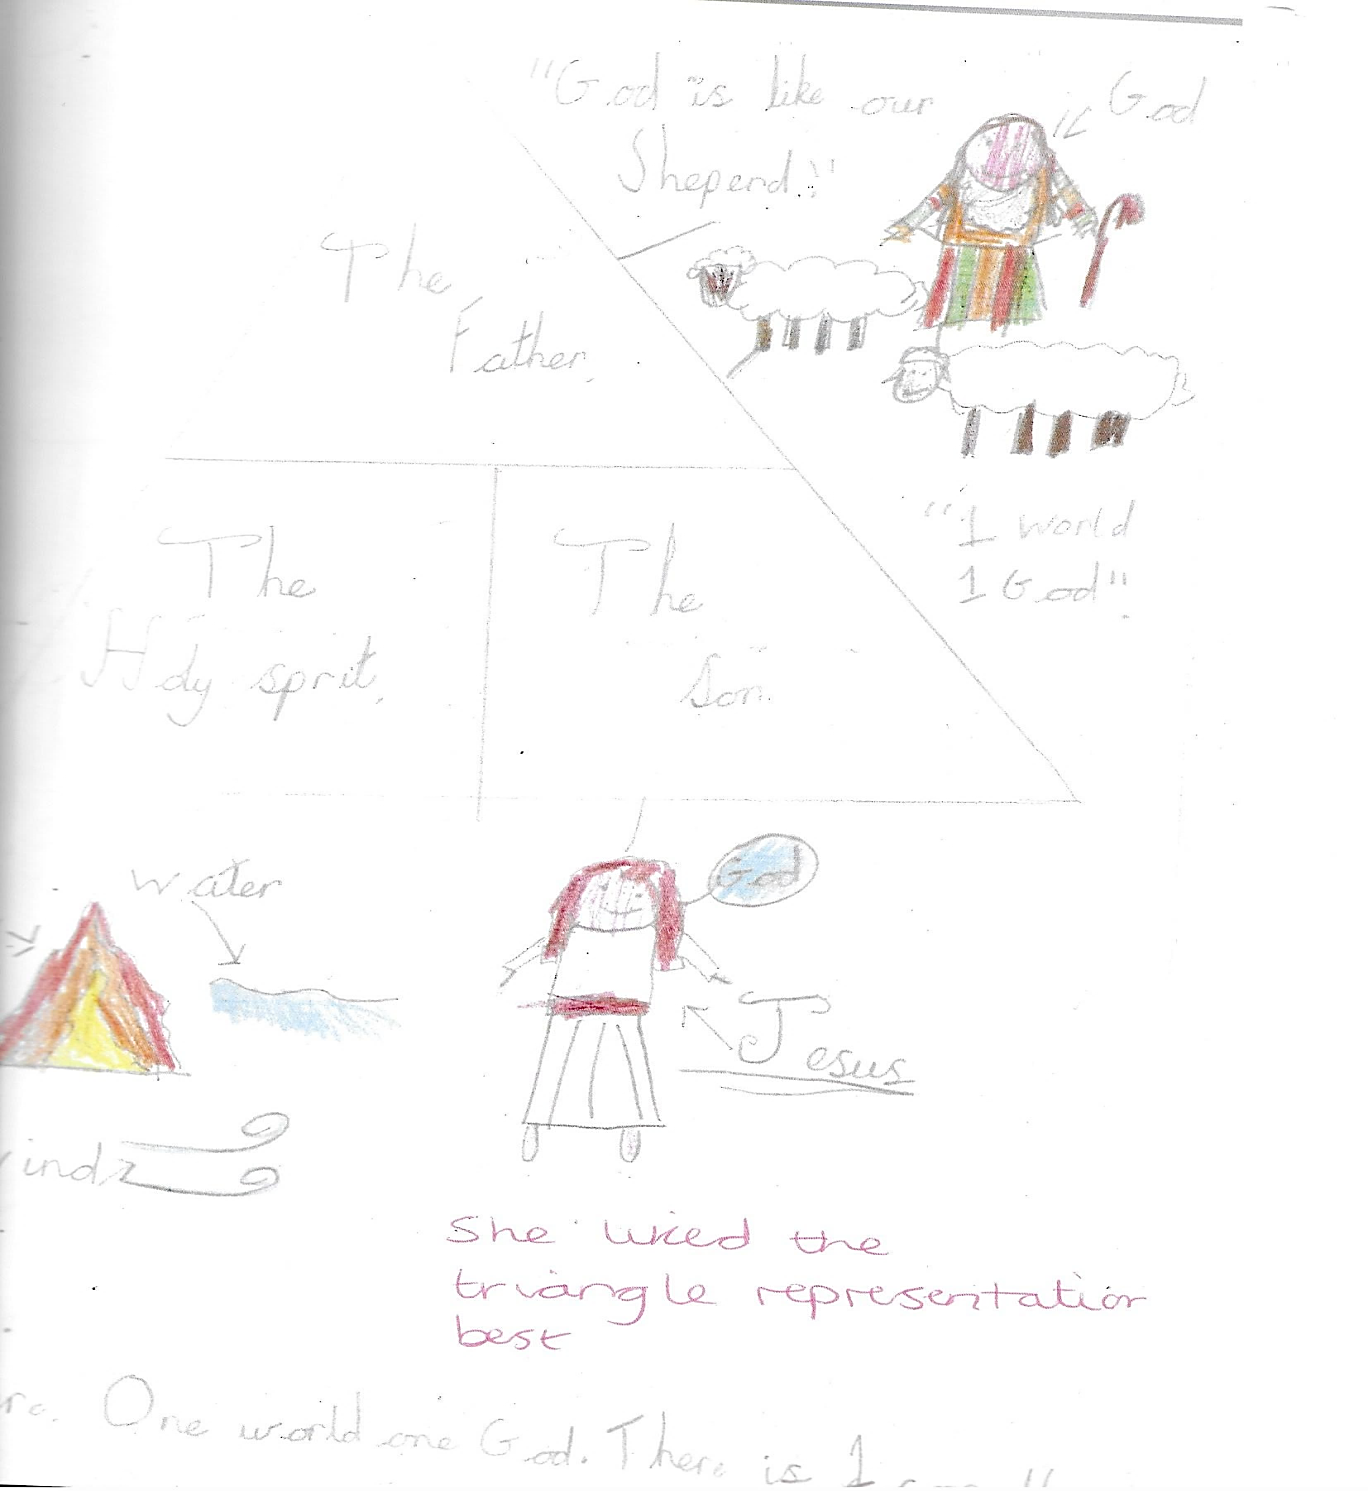 "God is like our
Sheperd."
God
The
Father.
"1 world
1 God".
The
Holy sprit.
The
Son.
water
God
Jesus
ind
She liked the
triangle representation
best
One world one God. There is 1